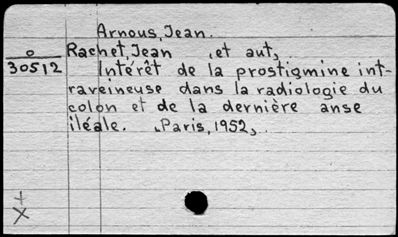 Arnous, Jean.
o Rachet, Jean , et aut.,
30512 Intérêt de la prostigmine int-
raveineuse dans la radiologie du
colon et de la dernière anse
iléale. , Paris, 1952, .
+
X